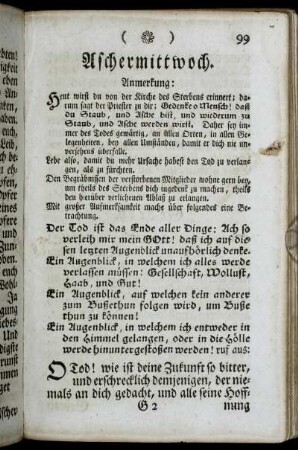 ( ❀ ) 99
Aschermittwoch.
Anmerkung:
Heut wirst du von der Kirche des Sterbens erinnert; da-
rum sagt der Priester zu dir: Gedenke o Mensch! daß
du Staub, und Asche bist, und wiederum zu
Staub, und Asche werden wirst. Daher sey im-
mer des Todes gewärtig, an allen Orten, in allen Be-
legenheiten, bey allen Umständen, damit er dich nie un-
versehens überfalle.
Lebe also, damit du mehr Ursache habest den Tod zu verlan-
gen, als zu fürchten.
Den Begräbnussen der verstorbenen Mitglieder wohne gern bey,
um theils des Sterbens dich ingedenk zu machen, theils
den hierüber verliehenen Ablaß zu erlangen.
Mit großer Aufmerksamkeit mache über folgendes eine Be-
trachtung.
Der Tod ist das Ende aller Dinge: Ach so
verleih mir mein GOtt! daß ich auf die-
sen letzten Augenblick unaufhörlich denke.
Ein Augenblick, in welchem ich alles werde
verlassen müssen: Gesellschaft, Wollust,
Haab, und Gut!
Ein Augenblick, auf welchen kein anderer
zum Bußethun folgen wird, um Buße
thun zu können!
Ein Augenblick, in welchem ich entweder in
den Himmel gelangen, oder in die Hölle
werde hinunter gestoßen werden! ruf aus:
O Tod! wie ist deine Zukunft so bitter,
und erschrecklich demjenigen, der nie-
mals an dich gedacht, und alle seine Hoff-
G 2 nung